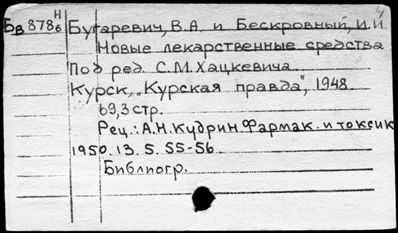 Бв 878б Н Бугаревич, В.А. и Бескровный, И.И.
Новые лекарственные средства
Под ред. С.М. Хацкевича
Курск, "Курская правда", 1948.
69,3 стр.
Рец.: А.Н. Кудрин. Фармак. и токсик
1950. 13. 5. 55-56.
Библиогр.